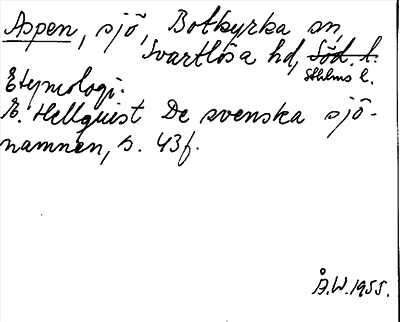 Aspen, sjö, Botkyrka sn,
Svartlösa hd, Söd. l.
Sthlms l.
Etymologi:
E. Hellquist De svenska sjö-
namnen, s. 43f.
Å.W. 1955.